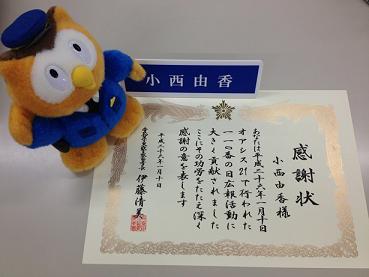 小西由香
感謝状
小西由香様
あなたは平成二十六年一月十日
オアシス21で行われた
一一〇番の日広報活動に
大きく貢献されました
ここにその功労をたたえ深く
感謝の意を表します
平成二十六年一月十日
伊藤清美